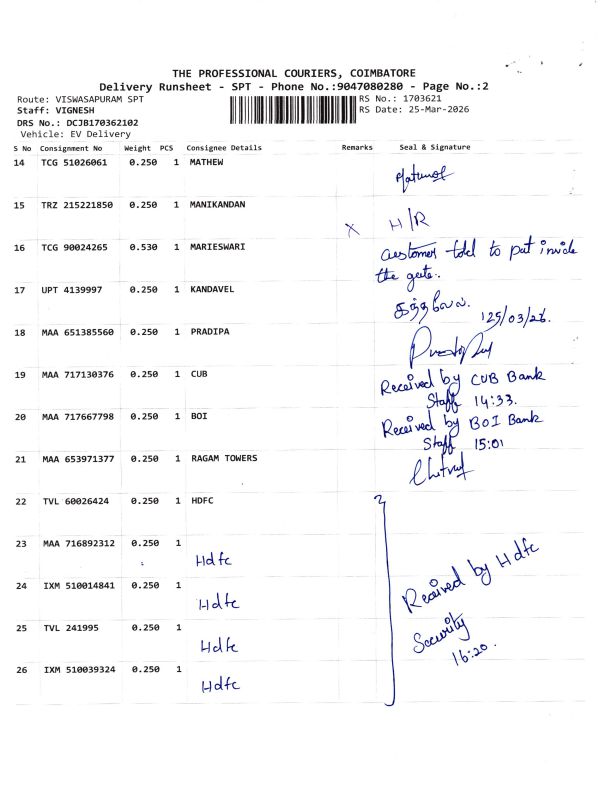 THE PROFESSIONAL COURIERS, COIMBATORE
Delivery Runsheet - SPT - Phone No.:9047080280 - Page No.:2
Route: VISWASAPURAM SPT
RS No.: 1703621
Staff: VIGNESH
RS Date: 25-Mar-2026
DRS No.: DCJB170362102
Vehicle: EV Delivery
S No Consignment No Weight PCS Consignee Details Remarks Seal & Signature
14 TCG 51026061 0.250 1 MATHEW
15 TRZ 215221850 0.250 1 MANIKANDAN
X H/R
16 TCG 90024265 0.530 1 MARIESWARI
customer told to put inside
the gate.
17 UPT 4139997 0.250 1 KANDAVEL
கந்தவேல்.
125/03/26.
18 MAA 651385560 0.250 1 PRADIPA
19 MAA 717130376 0.250 1 CUB
Received by CUB Bank
Staff 14:33.
20 MAA 717667798 0.250 1 BOI
Received by BOI Bank
Staff 15:01
21 MAA 653971377 0.250 1 RAGAM TOWERS
22 TVL 60026424 0.250 1 HDFC
23 MAA 716892312 0.250 1
Hdfc
24 IXM 510014841 0.250 1
Hdfc
25 TVL 241995 0.250 1
Hdfc
26 IXM 510039324 0.250 1
Hdfc
Received by Hdfc
Security
16:20.